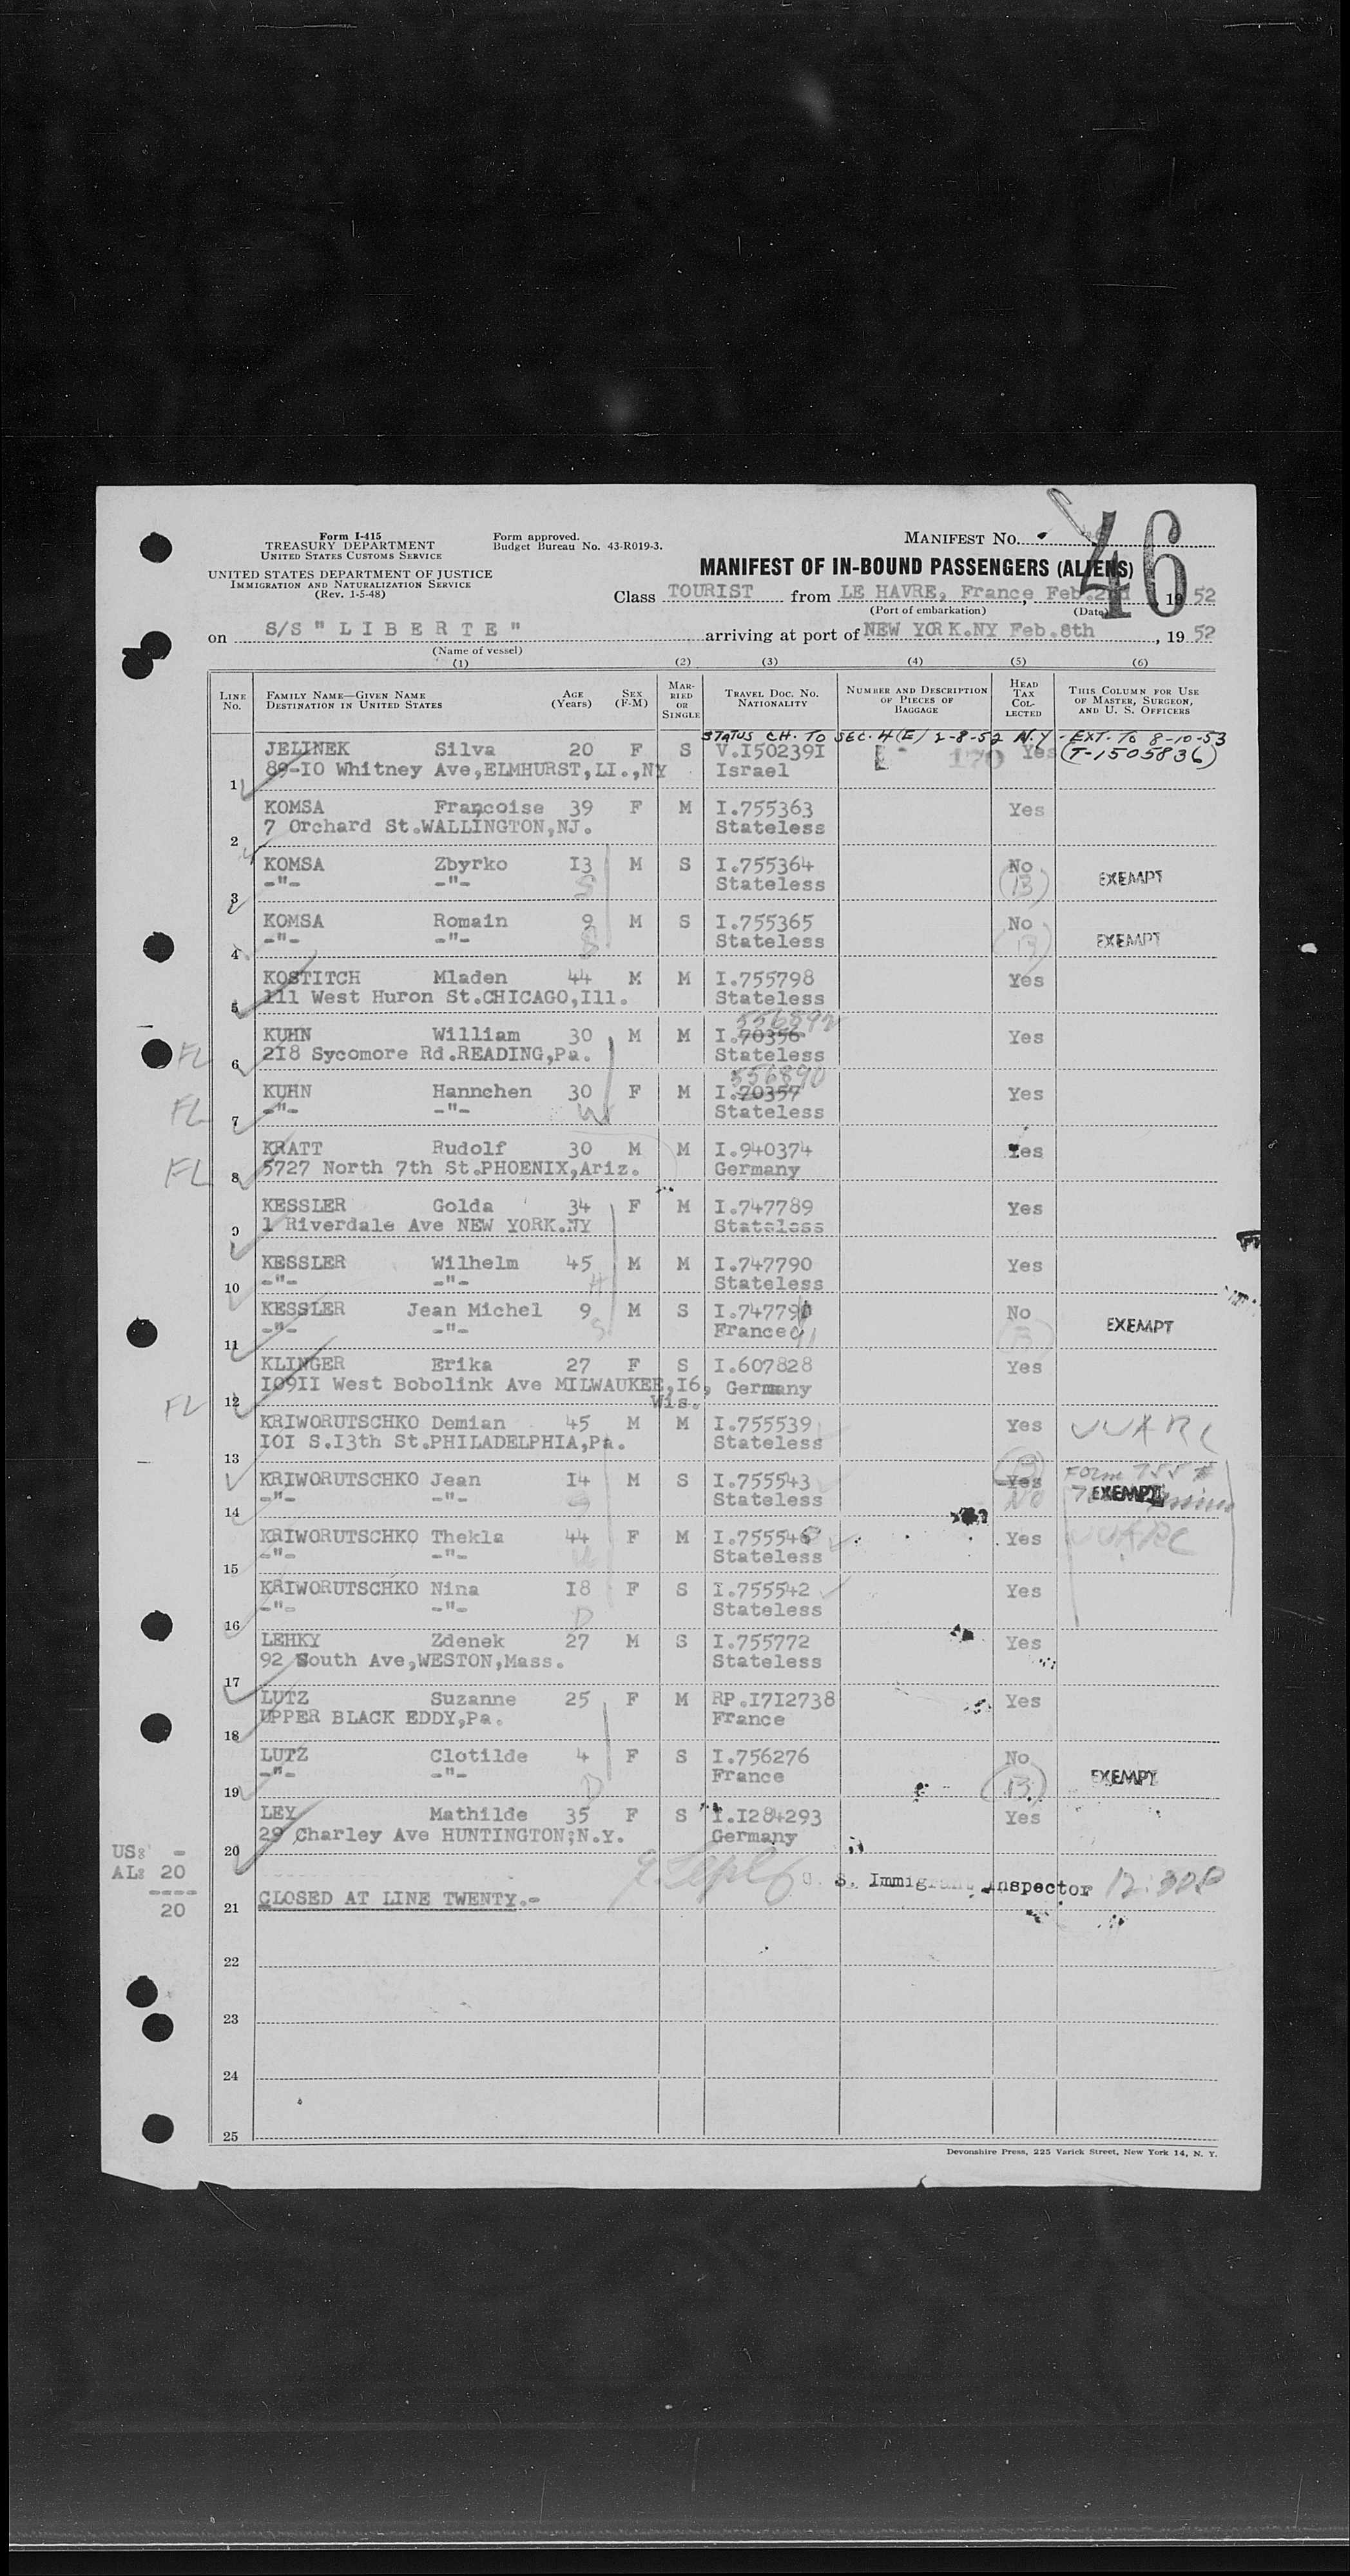 Form I-415
TREASURY DEPARTMENT
UNITED STATES CUSTOMS SERVICE
UNITED STATES DEPARTMENT OF JUSTICE
IMMIGRATION AND NATURALIZATION SERVICE
(Rev. 1-5-48)
Form approved.
Budget Bureau No. 43-R019-3.
MANIFEST No.
46
MANIFEST OF IN-BOUND PASSENGERS (ALIENS)
Class TOURIST from LE HAVRE, France, Feb.2nd 19 52
(Port of embarkation) (Date)
on S/S " L I B E R T E " arriving at port of NEW YORK.NY Feb.8th, 19 52
(Name of vessel)
(1) (2) (3) (4) (5) (6)
LINE No. FAMILY NAME—GIVEN NAME DESTINATION IN UNITED STATES AGE (Years) SEX (F-M) MARRIED OR SINGLE TRAVEL DOC. NO. NATIONALITY NUMBER AND DESCRIPTION OF PIECES OF BAGGAGE HEAD TAX COLLECTED THIS COLUMN FOR USE OF MASTER, SURGEON, AND U. S. OFFICERS
STATUS CH. TO SEC. 4(E) 2-8-52 N.Y - EXT. TO 8-10-53
JELINEK Silva 20 F S V.I50239I 170 Yes (T-1505836)
1 89-I0 Whitney Ave,ELMHURST,LI.,NY Israel
KOMSA Françoise 39 F M I.755363 Yes
2 7 Orchard St.WALLINGTON,NJ. Stateless
KOMSA Zbyrko I3 M S I.755364 No EXEMPT
3 -"- -"- S Stateless (B)
KOMSA Romain 9 M S I.755365 No EXEMPT
4 -"- -"- S Stateless (B)
KOSTITCH Mladen 44 M M I.755798 Yes
5 111 West Huron St.CHICAGO,Ill. Stateless
556892
KUHN William 30 M M I.70356 Yes
FL 6 2I8 Sycomore Rd.READING,Pa. Stateless
556890
KUHN Hannchen 30 F M I.70357 Yes
FL 7 -"- -"- W Stateless
KRATT Rudolf 30 M M I.940374 Yes
FL 8 5727 North 7th St.PHOENIX,Ariz. Germany
KESSLER Golda 34 F M I.747789 Yes
9 1 Riverdale Ave NEW YORK.NY Stateless
KESSLER Wilhelm 45 M M I.747790 Yes
10 -"- -"- H Stateless
KESSLER Jean Michel 9 M S I.74779 No EXEMPT
11 -"- -"- S France (B)
KLINGER Erika 27 F S I.607828 Yes
FL 12 I09II West Bobolink Ave MILWAUKEE,I6, Wis. Germany
KRIWORUTSCHKO Demian 45 M M I.755539 Yes
13 I0I S.I3th St.PHILADELPHIA,Pa. Stateless
KRIWORUTSCHKO Jean I4 M S I.755543 (B) Yes No Form 755 EXEMPT
14 -"- -"- S Stateless
KRIWORUTSCHKO Thekla 44 F M I.75554 Yes
15 -"- -"- W Stateless
KRIWORUTSCHKO Nina I8 F S I.755542 Yes
16 -"- -"- D Stateless
LEHKY Zdenek 27 M S I.755772 Yes
17 92 South Ave,WESTON,Mass. Stateless
LUTZ Suzanne 25 F M RP.I7I2738 Yes
18 UPPER BLACK EDDY,Pa. France
LUTZ Clotilde 4 F S I.756276 No EXEMPT
19 -"- -"- D France (B)
LEY Mathilde 35 F S I.I284293 Yes
20 29 Charley Ave HUNTINGTON;N.Y. Germany
US: -
AL: 20
----
20
U. S. Immigrant Inspector
21 CLOSED AT LINE TWENTY.-
22
23
24
25
Devonshire Press, 225 Varick Street, New York 14, N. Y.